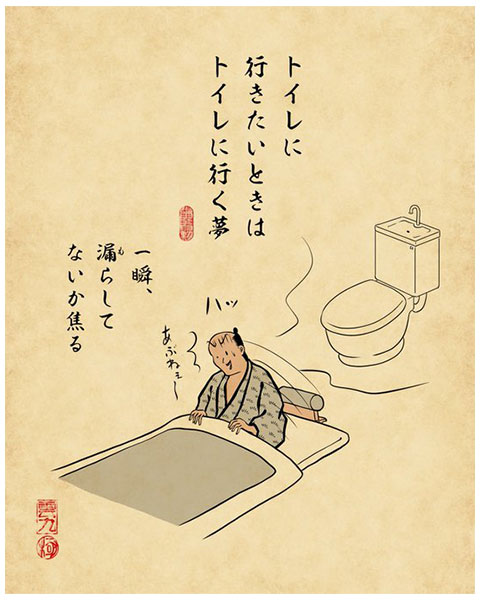 トイレに
行きたいときは
トイレに行く夢
一瞬、
漏らして
も
ないか焦る
ハッ
あぶねぇ〜